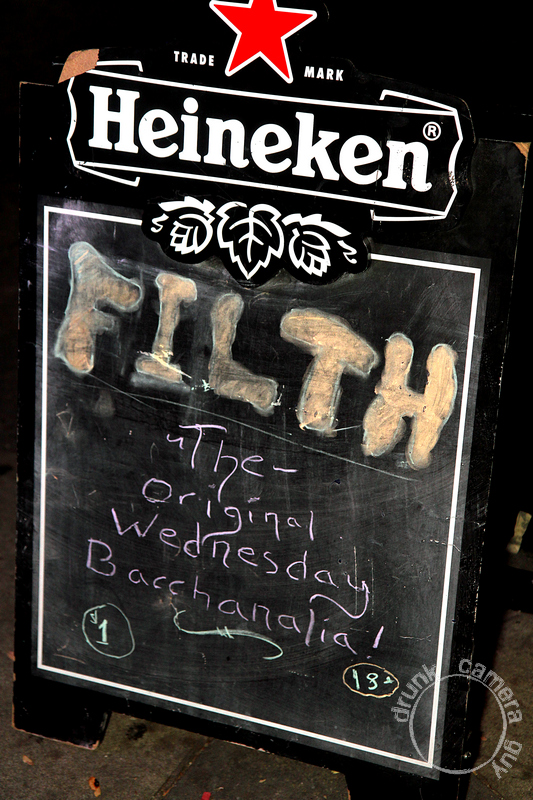 TRADE MARK
Heineken®
FILTH
"The-
Original
Wednesday
Bacchanalia!
$1
18+
drunk camera guy